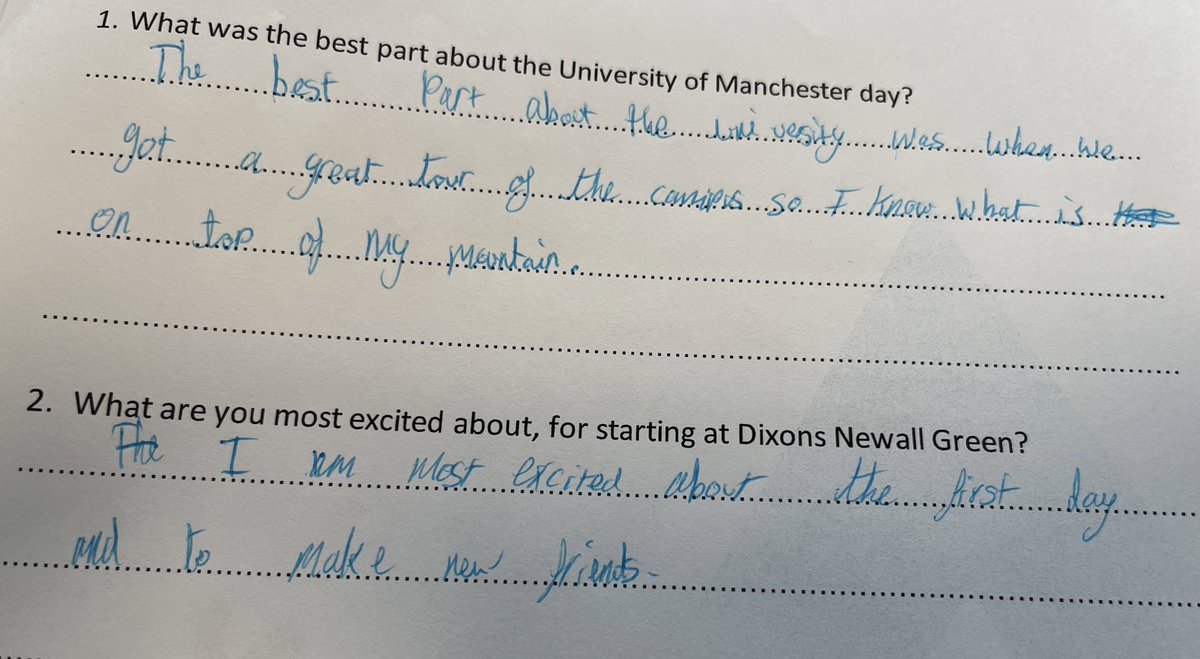 1. What was the best part about the University of Manchester day?
The best Part about the university was when we
got a great tour of the campus so I know what is
on top of my mountain.
2. What are you most excited about, for starting at Dixons Newall Green?
The I am most excited about the first day
and to make new friends.